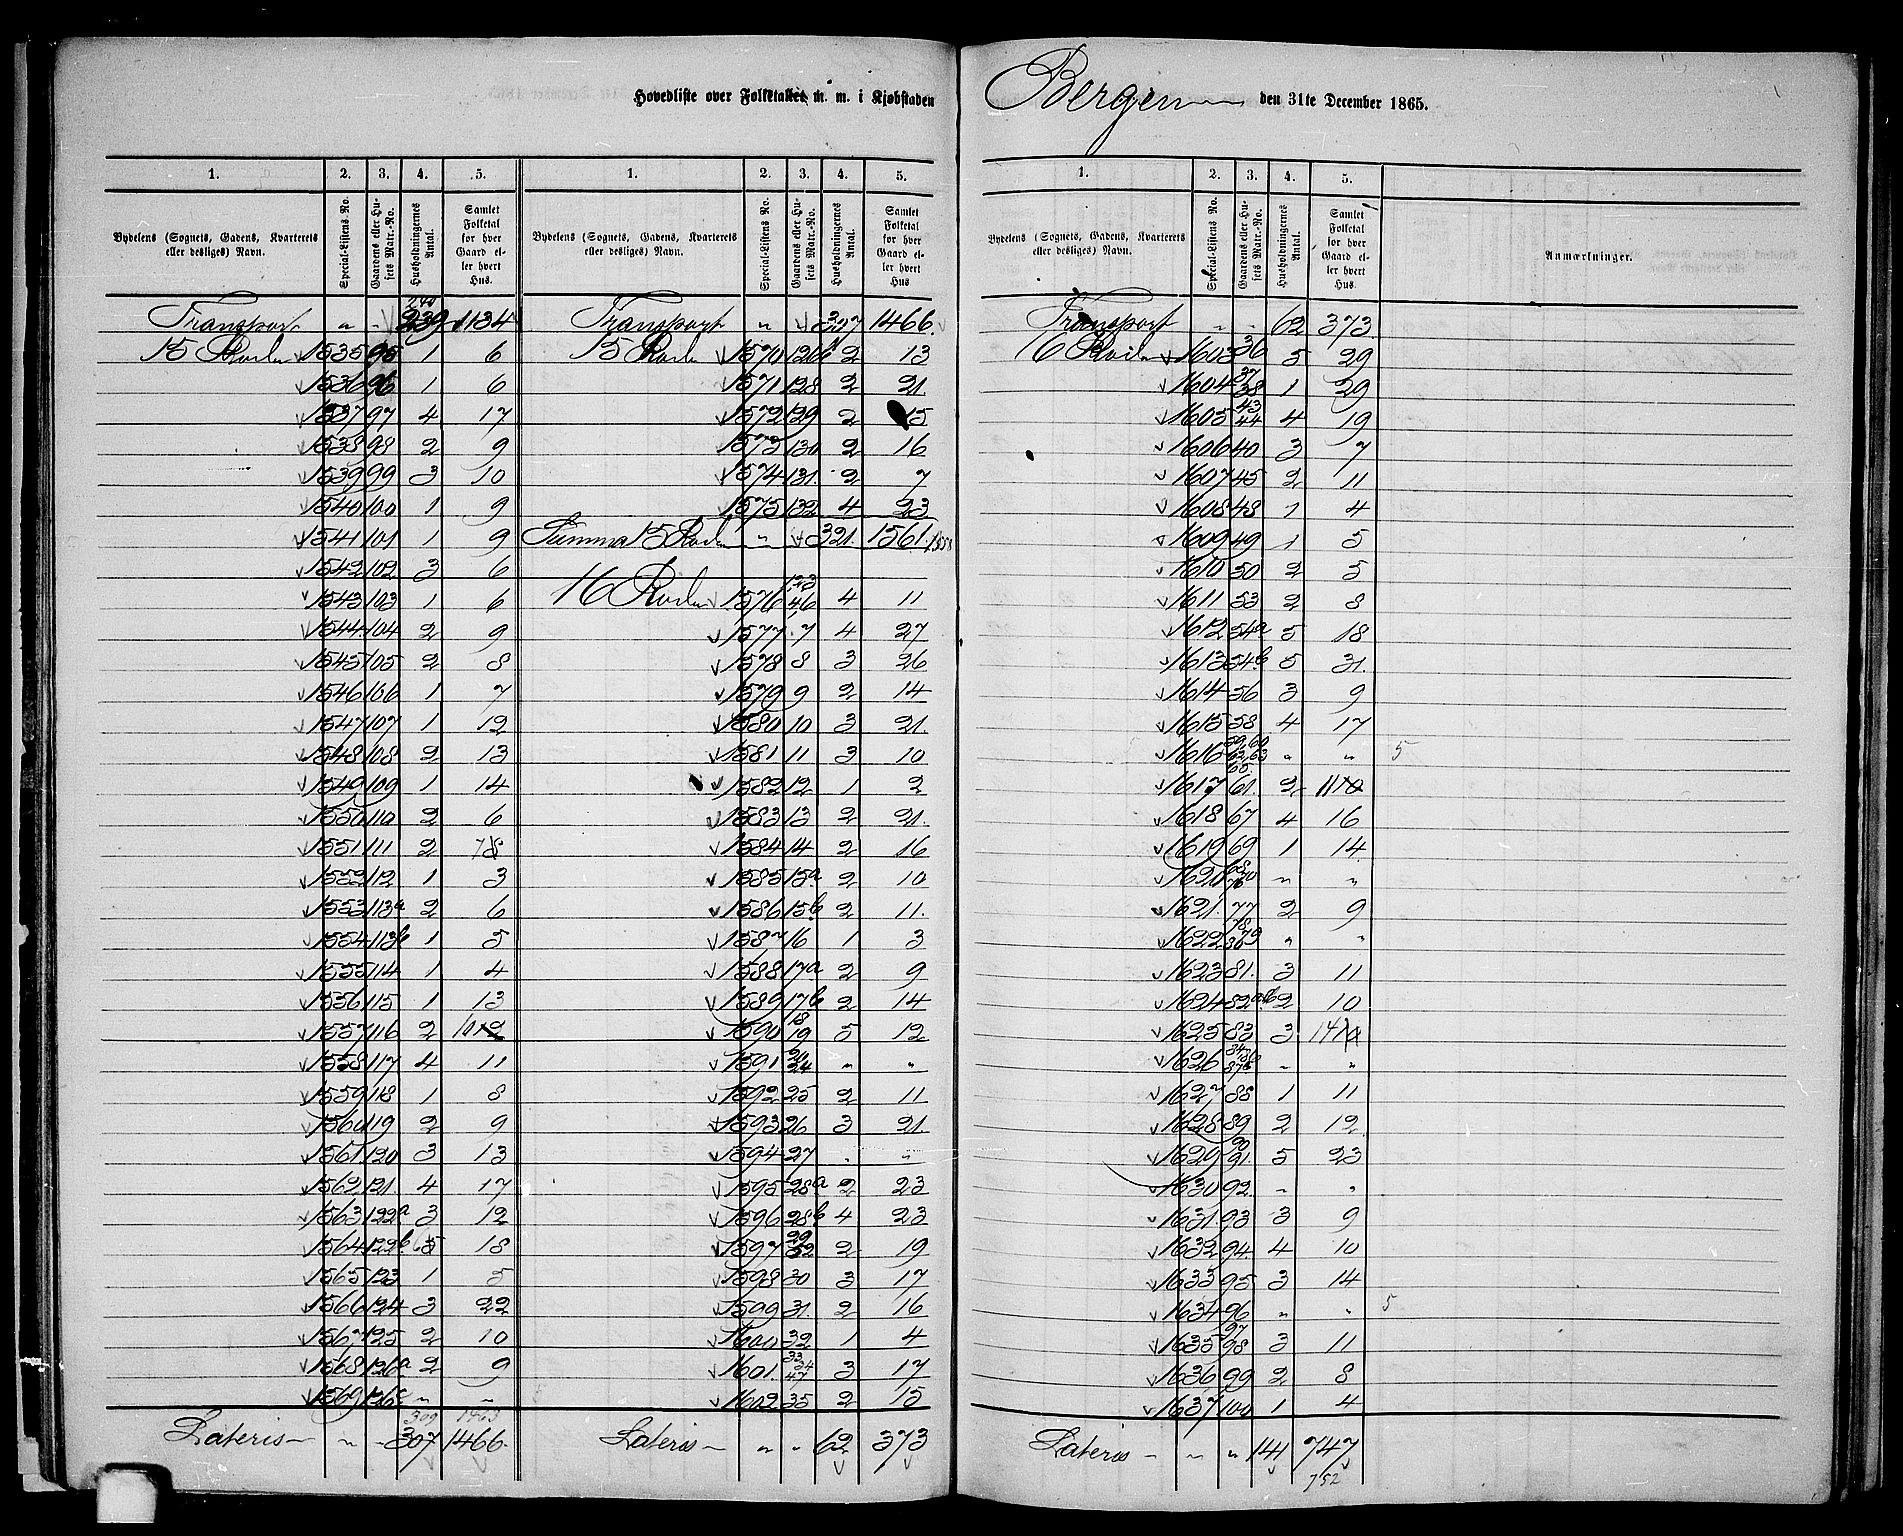 Hovedliste over Folketallet m. m. i Kjøbstaden Bergen den 31te December 1865.
1. 2. 3. 4. 5. 1. 2. 3. 4. 5.
Bydelens (Sognets, Gadens, Kvarterets eller desliges) Navn. Special-Listens No. Gaardens eller Husets Matr.-No. Husholdningernes Antal. Samlet Folketal for hver Gaard eller hvert Hus.
Bydelens (Sognets, Gadens, Kvarterets eller desliges) Navn. Special-Listens No. Gaardens eller Husets Matr.-No. Husholdningernes Antal. Samlet Folketal for hver Gaard eller hvert Hus
Transport " " 240 239 1134
15 Rode 1535 95 1 6
1536 96 1 6
1537 97 4 17
1538 98 2 9
1539 99 3 10
1540 100 1 9
1541 101 1 9
1542 102 3 6
1543 103 1 6
1544 104 2 9
1545 105 2 8
1546 106 1 7
1547 107 1 12
1548 108 2 13
1549 109 1 14
1550 110 2 6
1551 111 2 7 8
1552 112 1 3
1553 113a 2 6
1554 113b 1 5
1555 114 1 4
1556 115 1 13
1557 116 2 10 12
1558 117 4 11
1559 118 1 8
1560 119 2 9
1561 120 3 13
1562 121. 4 17
1563 122a 3 12
1564 122b 5 18
1565 123 1 5
1566 124 3 22
1567 125 2 10
1568 126a 2 9
1569 126c " "
309 1463
Lateris " " 307 1466.
Transport " 307 1466.
15 Rode 1570 126b 2 13
1571 128 2 21.
1572 129 2 15
1573 130 2 16
1574 131. 2 7
1575 132 4 23
Summa 15 Rode " 321. 1561. 1558
16 Rode 1576 1,2,3 4,6 4 11
1577 7 4 27
1578 8 3 26
1579 9 2 14
1580 10 3 21.
1581 11 3 10
1582 12 1 2
1583 13 2 21.
1584 14 2 16
1585 15a 2 10
1586 15b 2 11.
1587 16 1 3
1588 17a 2 9
1589 17b 2 14
1590 18 19 5 12
1591 20 24 " "
1592 25 2 11
1593 26 3 21
1594 27 " "
1595 28a 2 23
1596 28b 4 23
1597 29 52 2 19
1598 30 3 17
1599 31. 2 16
1600 32 1 4
1601. 33 34 47 3 17
1602 35 2 15
Lateris " " 62 373
1. 2. 3. 4. 5.
Bydelens (Sognets, Gadens, Kvarterets eller desliges) Navn. Special-Listens No. Gaardens eller Husets Matr.-No. Husholdningernes Antal. Samlet Folketal for hver Gaard eller hvert Hus. Anmærkninger.
Transport " " 62 373.
16 Rode 1603 36 5 29
1604 37 38 1 29
1605 43 44 4 19
1606 40 3 7
1607 45 2 11
1608 48 1 4
1609 49 1 5
1610 50 2 5
1611 53 2 8
1612 54a 5 18
1613 54b 5 31.
1614 56 3 9
1615 58 4 17
1616 59,60 62,63 65 " " 5
1617 61. 2 11
1618 67 4 16
1619 69 1 14
1620 68 70 76 " "
1621. 77 2 9
1622 78 79 80 " "
1623 81. 3 11
1624 82ab 2 10
1625 83 3 14
1626 " "
1627 88 1 11
1628 89 2 12
1629 90 91. 5 23
1630 92. " "
1631. 93 3 9
1632 94. 4 10
1633 95 3 14
1634 96 " " 5
1635 97 98 3 11
1636 99 2 8
1637 100 1 4
Lateris " " " 141 747
752